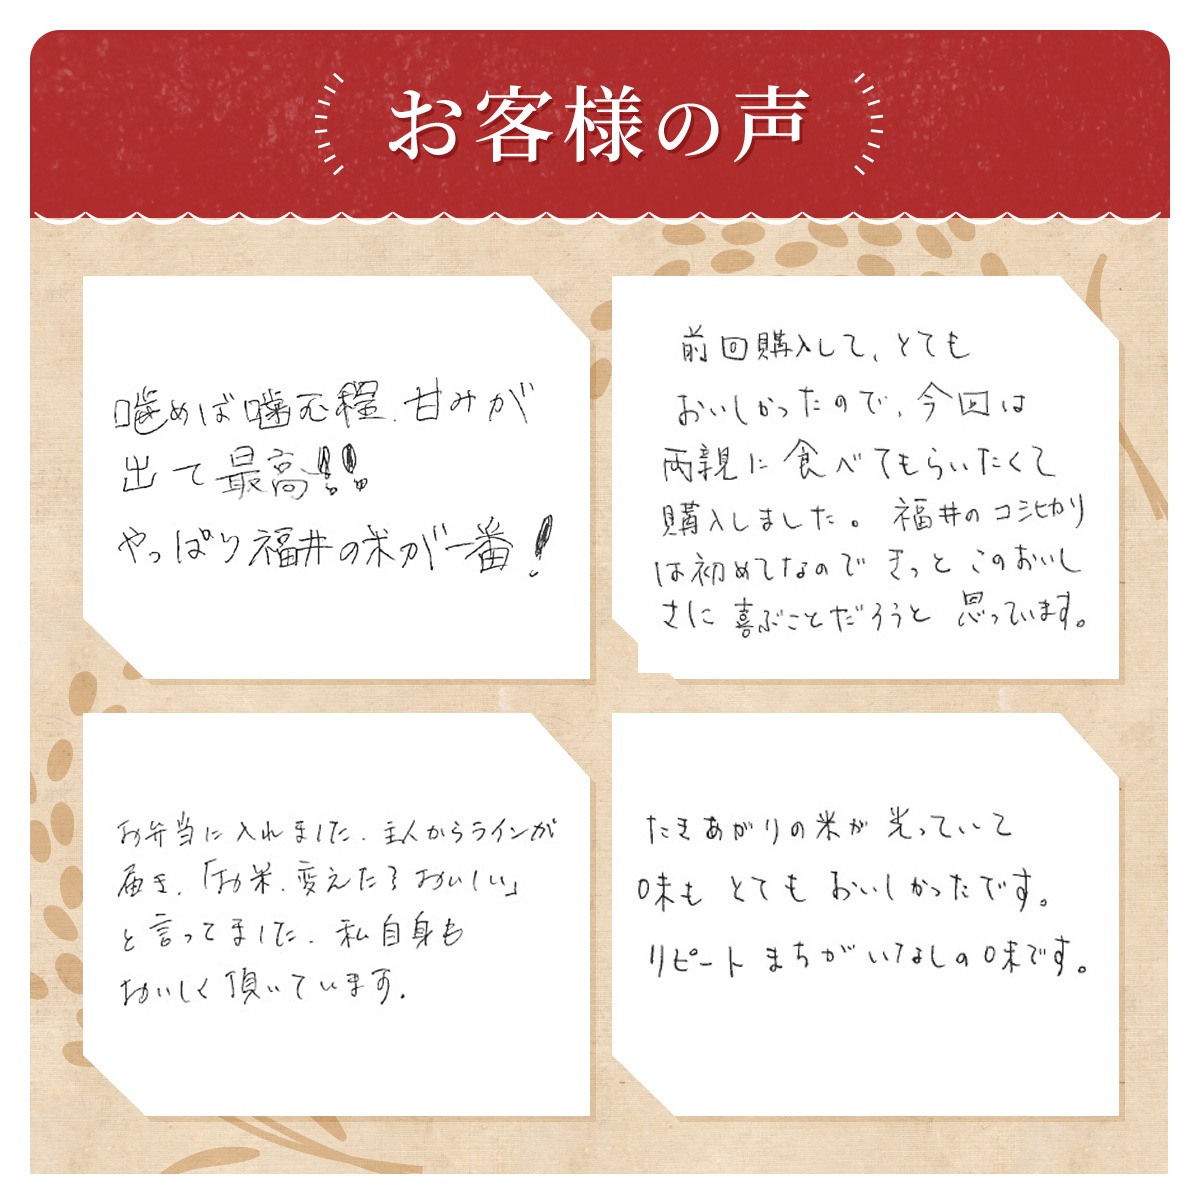 お客様の声
噛めば噛む程、甘みが
出て最高!!
やっぱり福井の米が一番!
前回購入して、とても
おいしかったので、今回は
両親に食べてもらいたくて
購入しました。福井のコシヒカリ
は初めてなのできっとこのおいし
さに喜ぶことだろうと思っています。
お弁当に入れました、主人からラインが
届き、「お米、変えたろおいしい」
と言ってました、私自身も
おいしく頂いています。
たきあがりの米が光っていて
味もとてもおいしかったです。
リピートまちがいなしの味です。